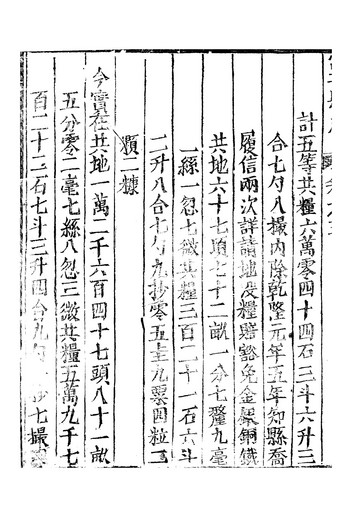 計五等共糧六萬零四十四石三斗六升三
合七勺八撮內除乾隆元年五年知縣喬
履信兩次詳請地及糧賠豁免金銀銅鐵
共地六十七頃七十二畝一分七釐九毫
一絲一忽七微共糧三百二十一石六斗
二升八合七勺九抄零五圭九粟四粒二
顆二糠
今實在共地一萬二千六百四十七頃八十一畝
五分零二毫七絲八忽三微共糧五萬九千七
百二十二石七斗三升四合九勺一抄七撮